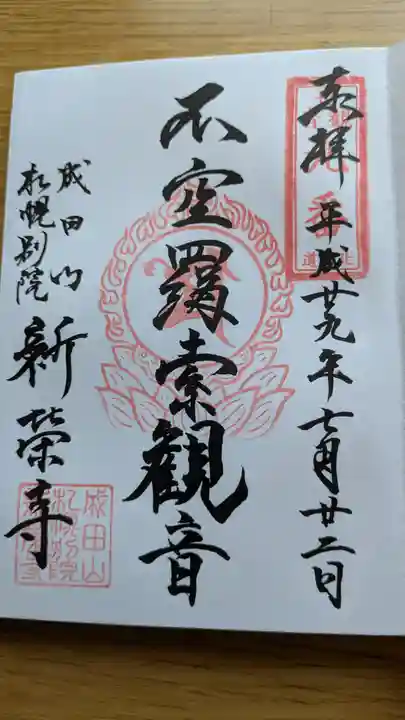 奉拝
平成廿九年七月廿二日
不空羂索観音
成田山
札幌別院
新栄寺
成田山
札幌別院
新栄寺